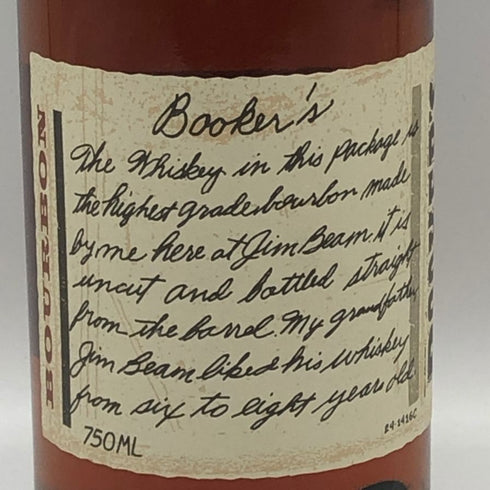 Booker's
The Whiskey in this package is
the highest grade bourbon made
by me here at Jim Beam. it is
uncut and bottled straight
from the barrel. My grandfather,
Jim Beam liked his whiskey
from six to eight years old.
750ML
BOURBON